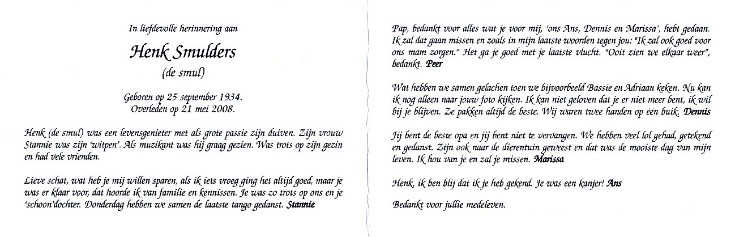 In liefdevolle herinnering aan
Henk Smulders
(de smul)
Geboren op 25 september 1934.
Overleden op 21 mei 2008.
Henk (de smul) was een levensgenieter met als grote passie zijn duiven. Zijn vrouw
Stannie was zijn 'witpen'. Als muzikant was hij graag gezien. Was trots op zijn gezin
en had vele vrienden.
Lieve schat, wat heb je mij willen sparen, als ik iets vroeg ging het altijd goed, maar je
was er klaar voor, dat hoorde ik van familie en kennissen. Je was zo trots op ons en je
'schoon'dochter. Donderdag hebben we samen de laatste tango gedanst. Stannie
Pap, bedankt voor alles wat je voor mij, 'ons Ans, Dennis en Marissa', hebt gedaan.
Ik zal dat gaan missen en zoals in mijn laatste woorden tegen jou: "Ik zal ook goed voor
ons mam zorgen." Het ga je goed met je laatste vlucht. "Ooit zien we elkaar weer",
bedankt. Peer
Wat hebben we samen gelachen toen we bijvoorbeeld Bassie en Adriaan keken. Nu kan
ik nog alleen naar jouw foto kijken. Ik kan niet geloven dat je er niet meer bent, ik wil
bij je blijven. Ze pakken altijd de beste. Wij waren twee handen op een buik. Dennis
Jij bent de beste opa en jij bent niet te vervangen. We hebben veel lol gehad, getekend
en gedanst. Zijn ook naar de dierentuin geweest en dat was de mooiste dag van mijn
leven. Ik hou van je en zal je missen. Marissa
Henk, ik ben blij dat ik je heb gekend. Je was een kanjer! Ans
Bedankt voor jullie medeleven.